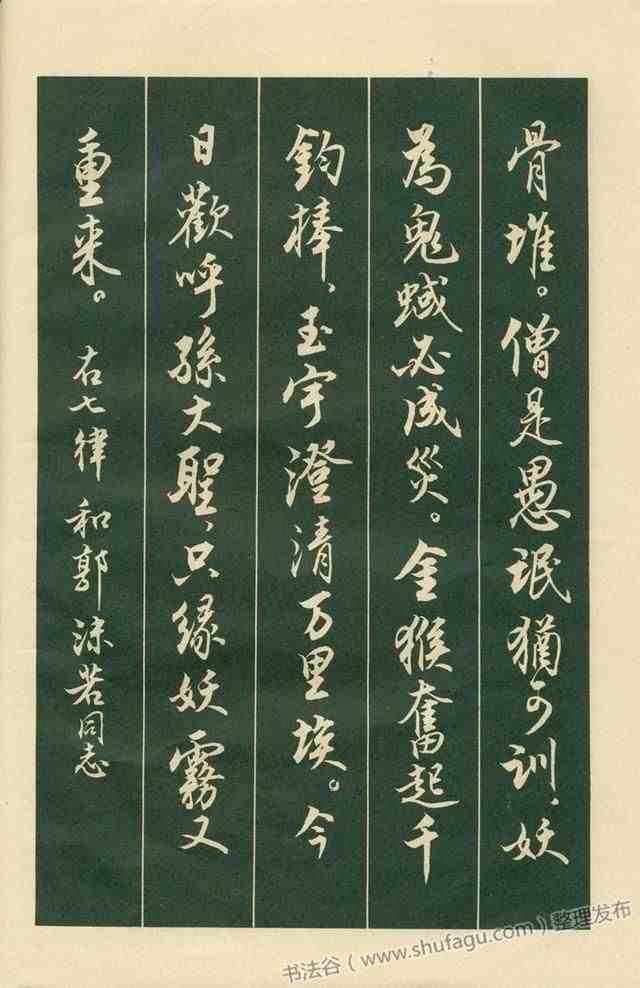 骨堆。僧是愚氓猶可訓、妖
為鬼蜮必成災。金猴奮起千
鈞棒、玉宇澄清万里埃。今
日歡呼孫大聖、只緣妖霧又
重来。右七律 和郭沫若同志
书法谷（www.shufagu.com）整理发布